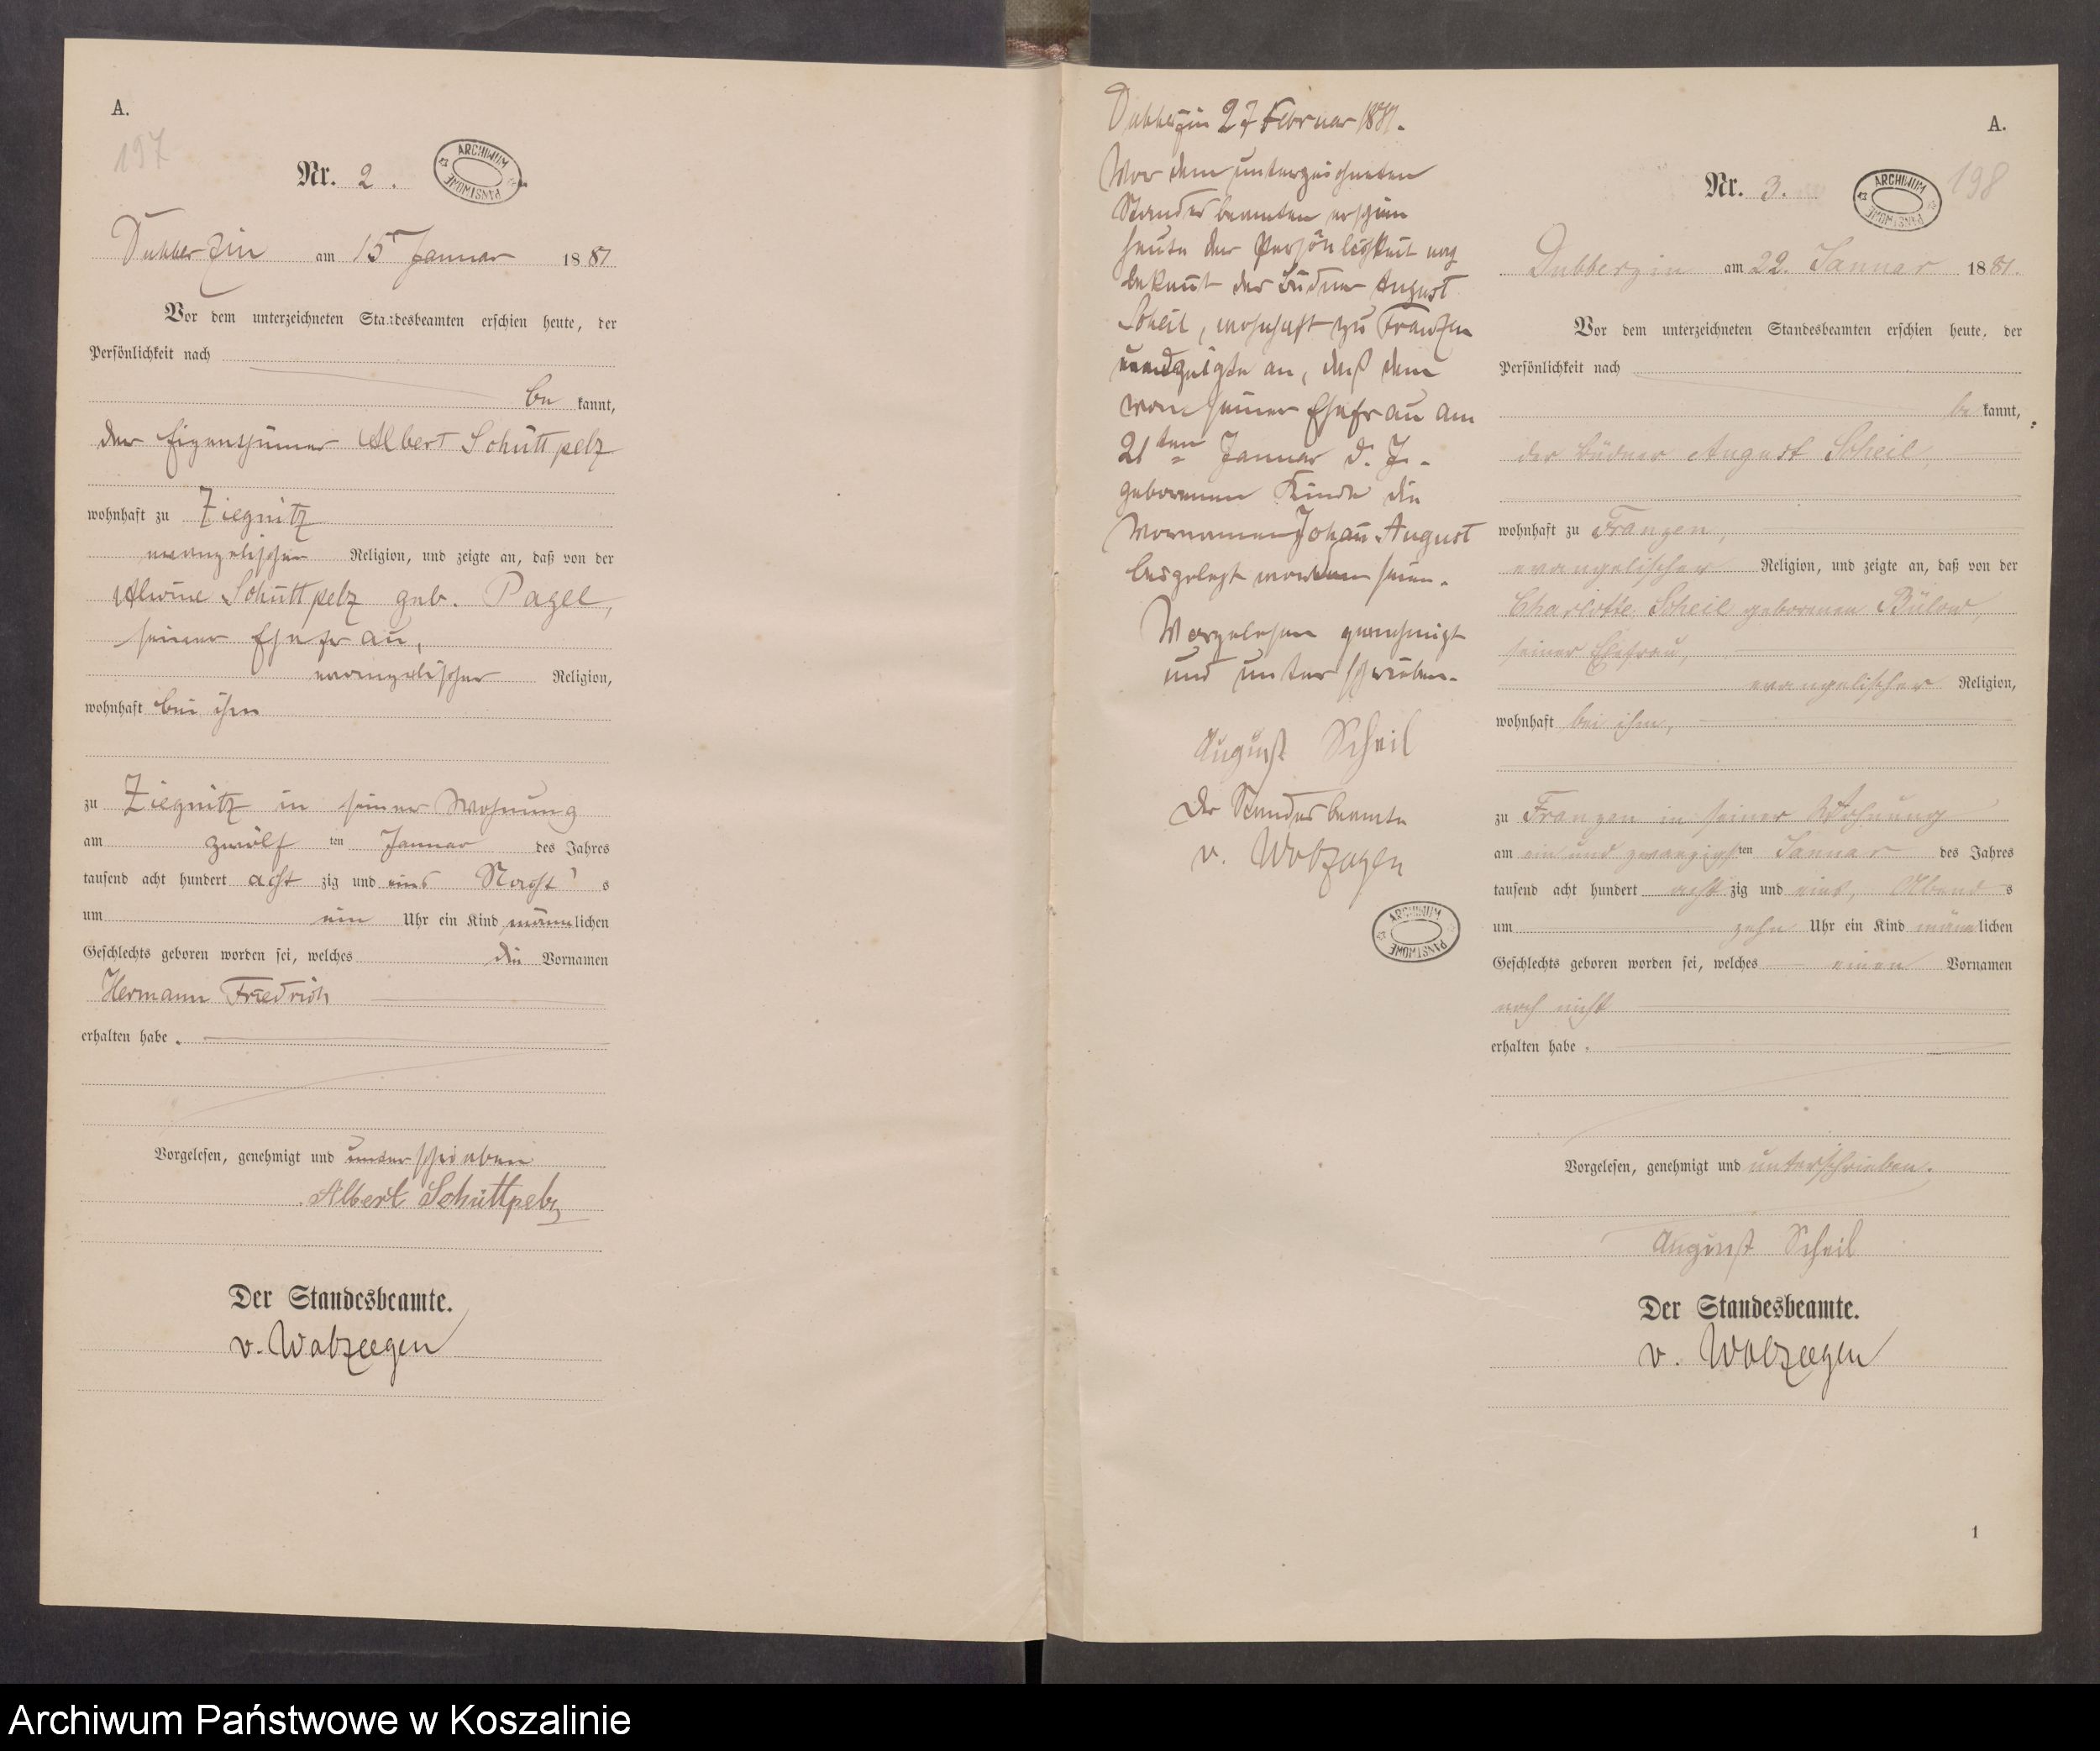 A.
197
Nr. 2.
ARCHIWUM PAŃSTWOWE
Dubberzin am 15 Januar 1881
Vor dem unterzeichneten Standesbeamten erschien heute, der
Persönlichkeit nach
be kannt,
der Eigenthümer Albert Schüttpelz
wohnhaft zu Ziegnitz
evangelischer Religion, und zeigte an, daß von der
Alwine Schüttpelz geb. Pagel,
seiner Ehefrau,
evangelischer Religion,
wohnhaft bei ihm
zu Ziegnitz in seiner Wohnung
am zwölf ten Januar des Jahres
tausend acht hundert acht zig und eins Nacht s
um ein Uhr ein Kind männlichen
Geschlechts geboren worden sei, welches die Vornamen
Hermann Friedrich
erhalten habe.
Vorgelesen, genehmigt und unterschrieben
Albert Schüttpelz
Der Standesbeamte.
v.
Dubberzin 27 Februar 1881.
Vor dem unterzeichneten
Standesbeamten erschien
heute der Persönlichkeit nach
bekannt der Büdner August
Scheil, wohnhaft zu Franzen
und zeigte an, daß dem
von seiner Ehefrau am
21ten Januar d. J.
geborenen Kinde die
Vornamen Johann August
beigelegt worden seien.
Vorgelesen genehmigt
und unterschrieben.
August Scheil
Der Standesbeamte
v.
ARCHIWUM PAŃSTWOWE
A.
198
Nr. 3.
ARCHIWUM PAŃSTWOWE
Dubberzin am 22. Januar 1881.
Vor dem unterzeichneten Standesbeamten erschien heute, der
Persönlichkeit nach
be kannt,
der Büdner August Scheil,
wohnhaft zu Franzen,
evangelischer Religion, und zeigte an, daß von der
Charlotte Scheil geborenen Bülow,
seiner Ehefrau,
evangelischer Religion,
wohnhaft bei ihm,
zu Franzen in seiner Wohnung
am ein und zwanzigsten Januar des Jahres
tausend acht hundert acht zig und eins, Abend s
um zehn Uhr ein Kind männlichen
Geschlechts geboren worden sei, welches einen Vornamen
noch nicht
erhalten habe.
Vorgelesen, genehmigt und unterschrieben.
August Scheil
Der Standesbeamte.
v.
1
Archiwum Państwowe w Koszalinie